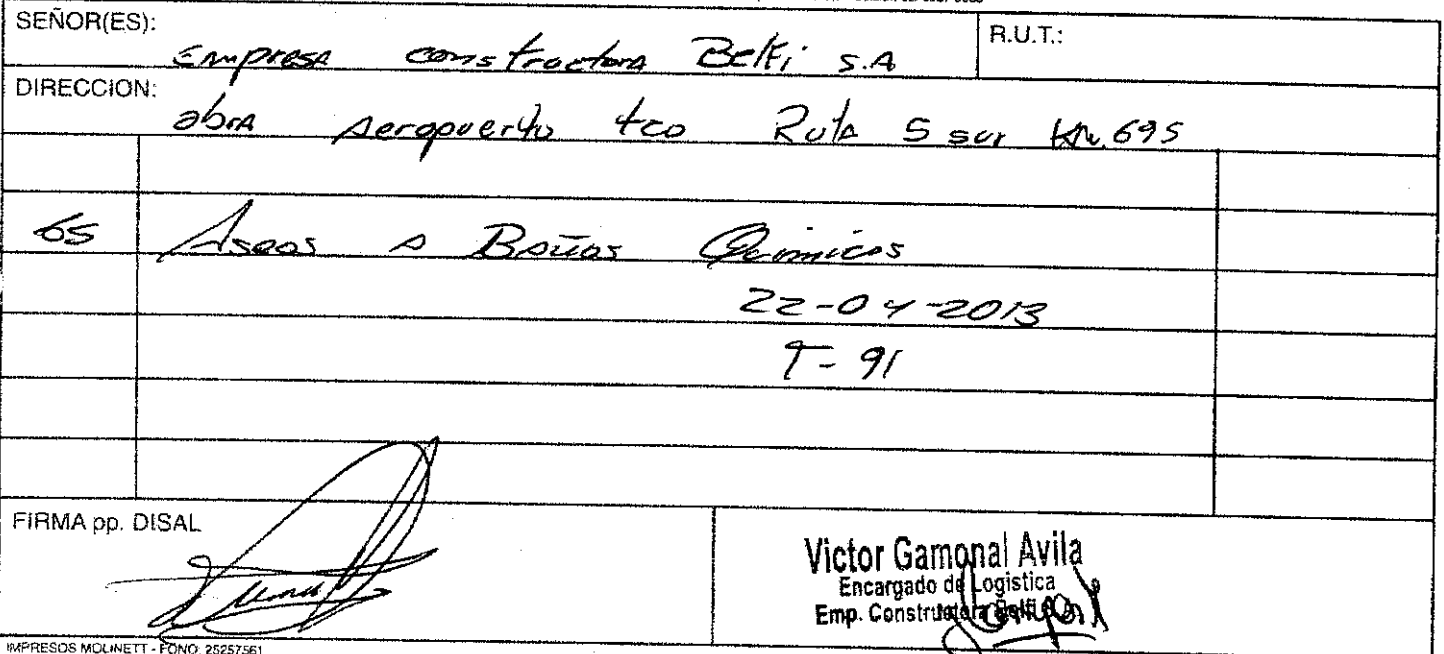 SEÑOR(ES): Empresa constructora Belfi S.A
R.U.T.:
DIRECCION: obra Aeropuerto tco Ruta 5 sur Km. 695
65 Aseos a Baños Quimicos
22-04-2013
T-91
FIRMA pp. DISAL
Victor Gamonal Avila
Encargado de Logistica
Emp. Constructora Belfi S.A.
IMPRESOS MOLINETT - FONO: 25257561